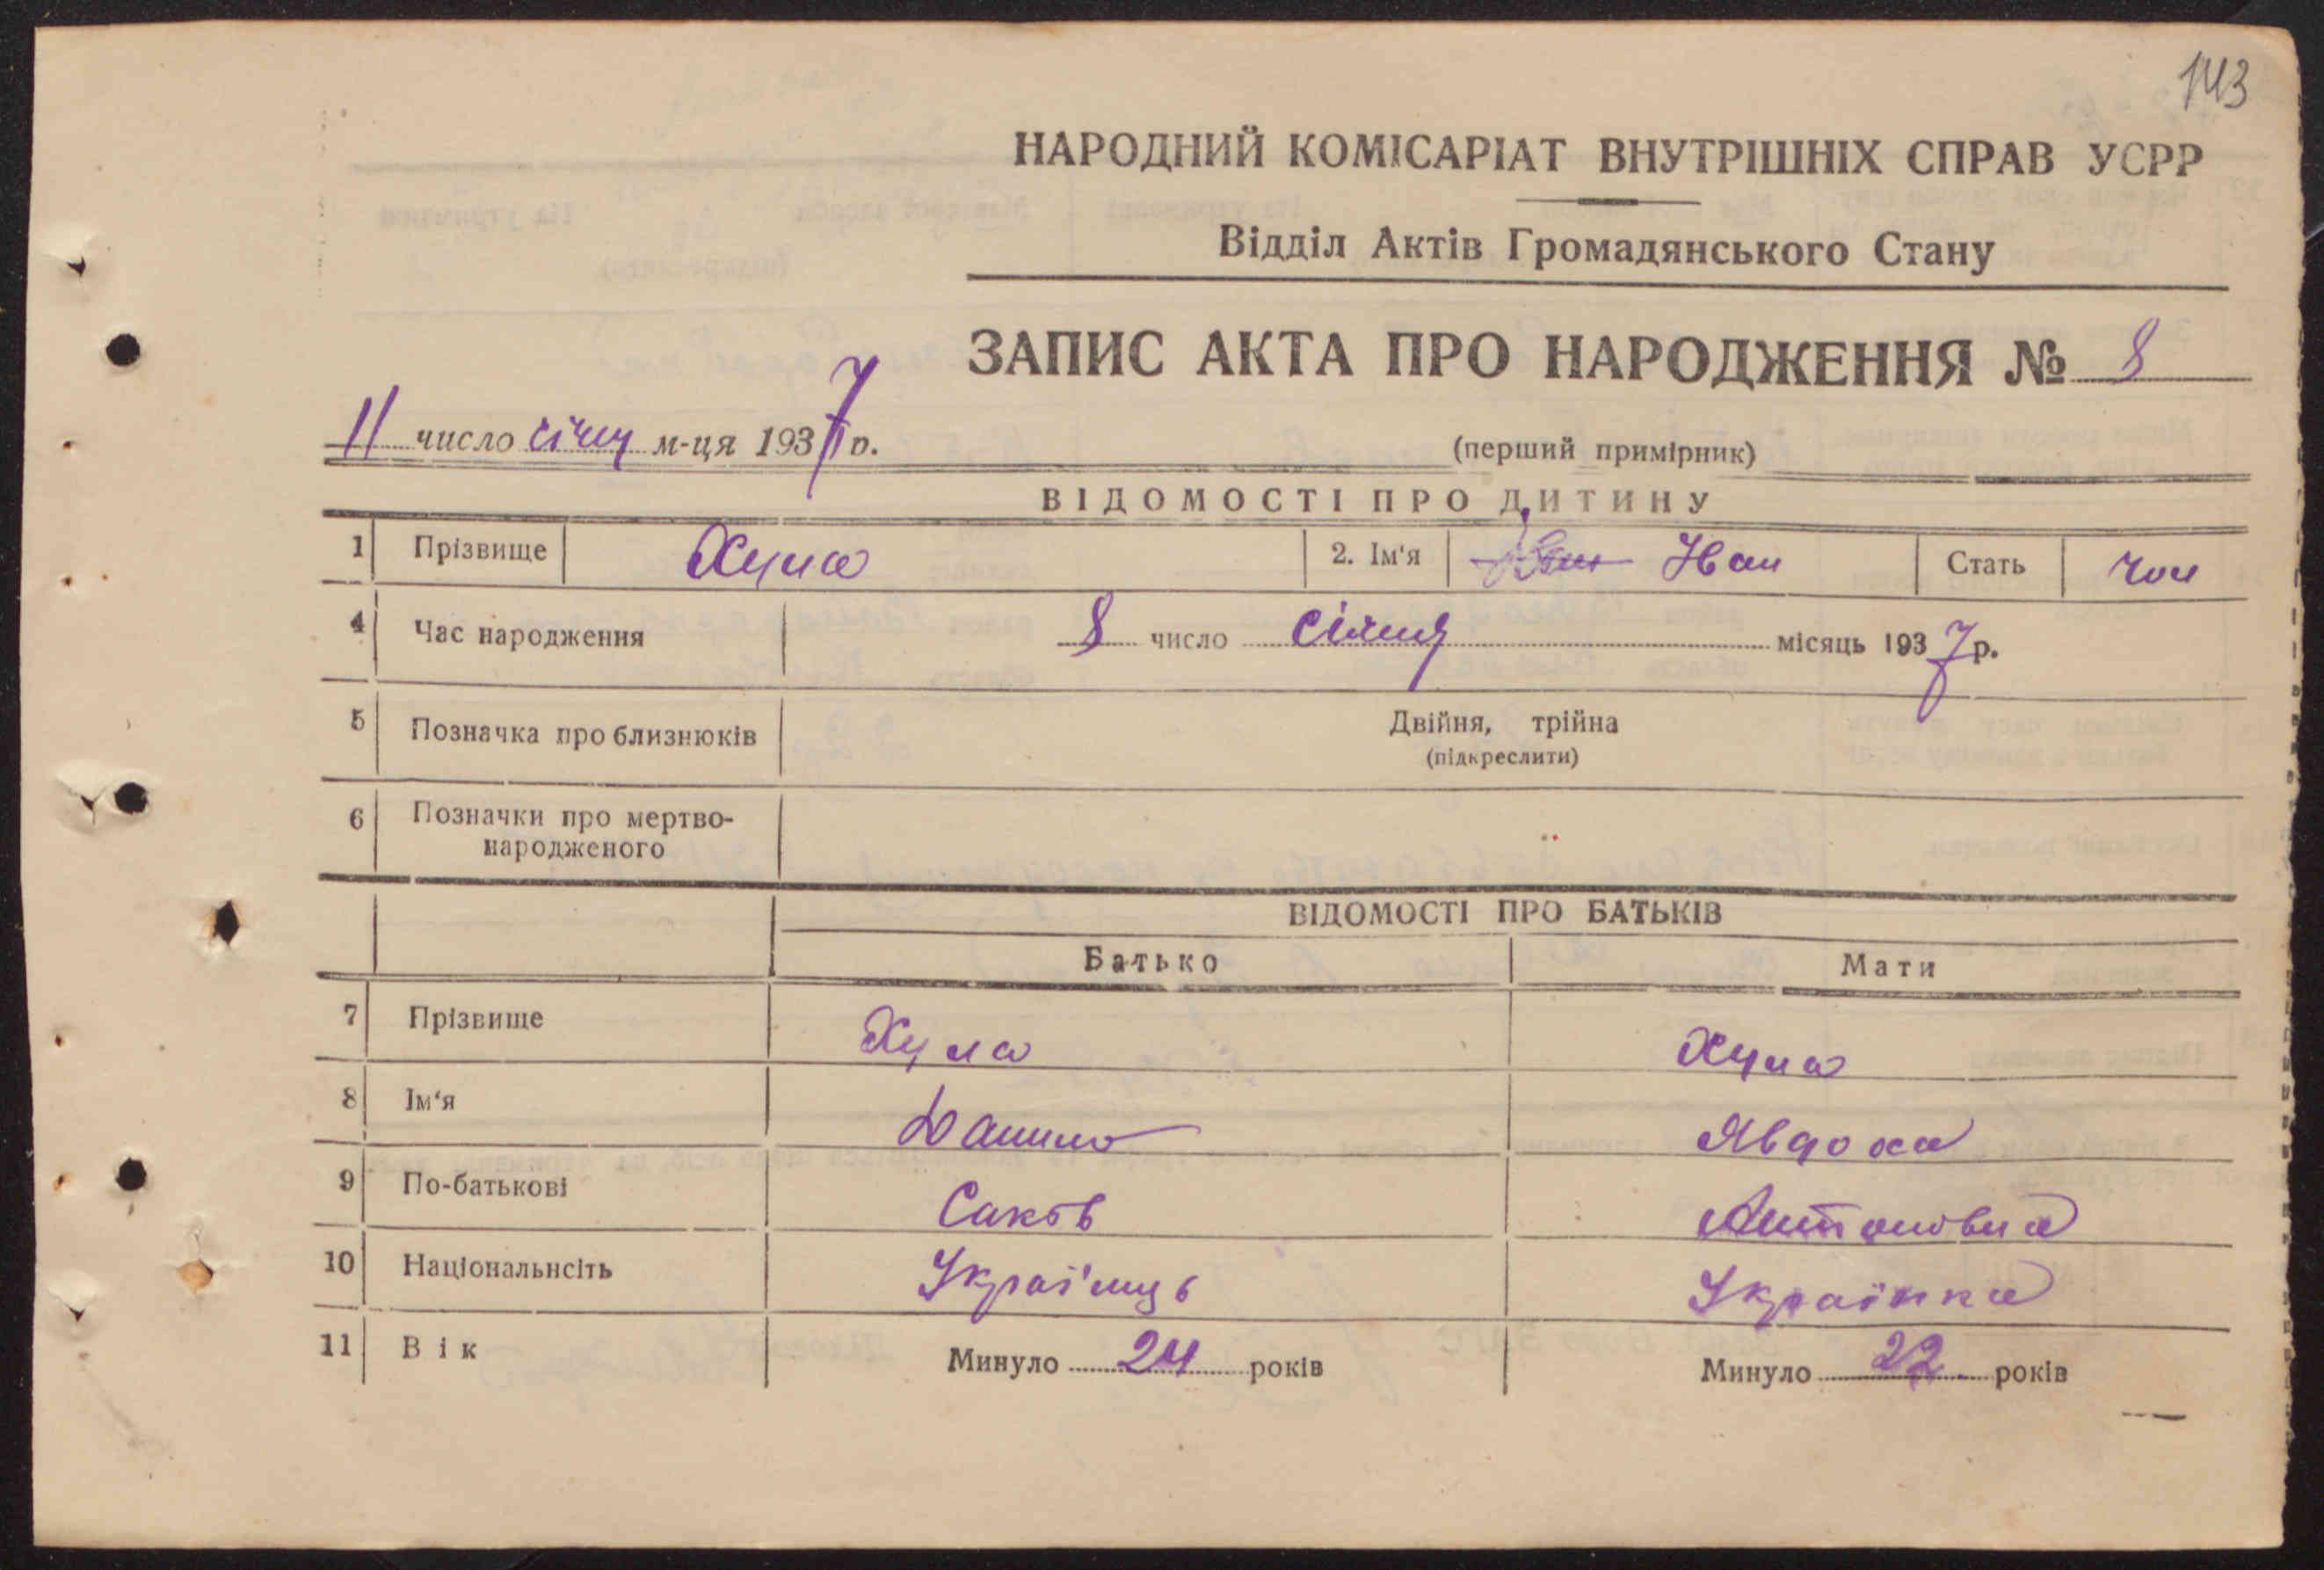 143
НАРОДНИЙ КОМІСАРІАТ ВНУТРІШНІХ СПРАВ УСРР
Відділ Актів Громадянського Стану
ЗАПИС АКТА ПРО НАРОДЖЕННЯ № 8
11 число січня м-ця 1937 р.
(перший примірник)
ВІДОМОСТІ ПРО ДИТИНУ
1 Прізвище Хула 2. Ім'я Іван Стать чол
4 Час народження 8 число січня місяць 1937 р.
5 Позначка про близнюків Двійня, трійна
(підкреслити)
6 Позначки про мертво-
народженого
ВІДОМОСТІ ПРО БАТЬКІВ
Батько Мати
7 Прізвище Хула Хула
8 Ім'я Данило Явдоха
9 По-батькові Саков Антоновна
10 Національнсіть Українць Українка
11 Вік Минуло 24 років Минуло 22 років